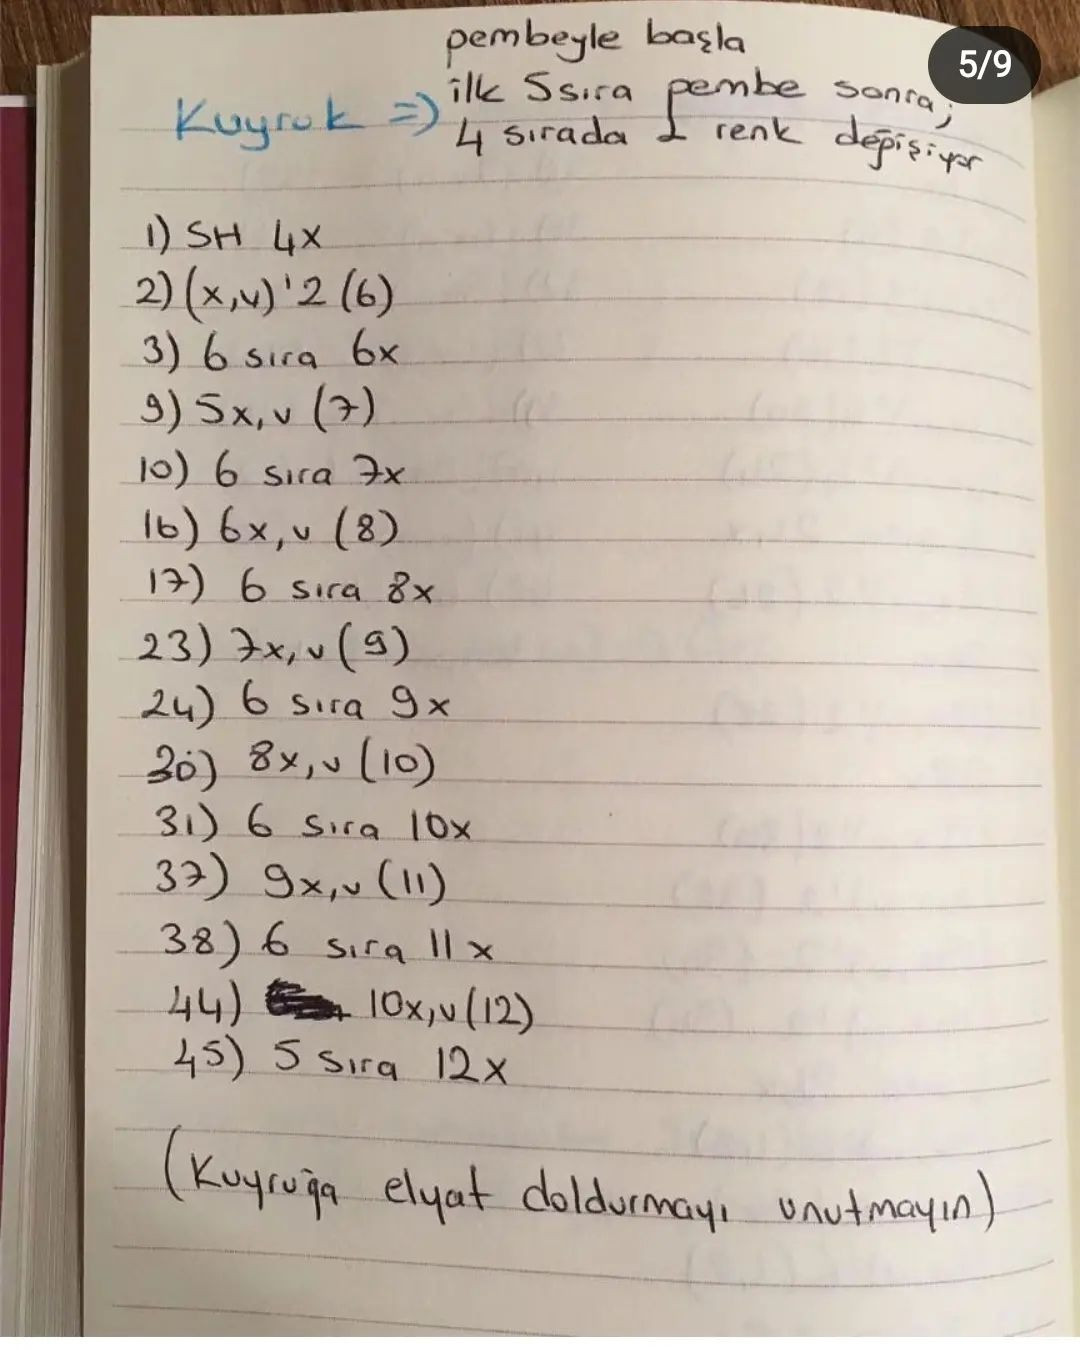 pembeyle başla
5/9
ilk 5 sıra pembe sonra;
Kuyruk => 4 sırada 1 renk değişiyor
1) SH 4x
2) (x,v)'2 (6)
3) 6 sıra 6x
9) 5x,v (7)
10) 6 sıra 7x
16) 6x,v (8)
17) 6 sıra 8x
23) 7x,v (9)
24) 6 sıra 9x
30) 8x,v (10)
31) 6 sıra 10x
37) 9x,v (11)
38) 6 sıra 11x
44) 10x,v (12)
45) 5 sıra 12x
(Kuyruğa elyat doldurmayı unutmayın)